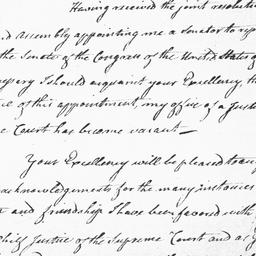 Having received the joint resolution
assembly appointing me a Senator to rep
the Senate of the Congress of the United States o
essary I should acquaint your Excellency, th
ce of this appointment, my office of a Just
e Court has become vacant —
Your Excellency will be pleased to acc
acknowledgements for the many instances
and friendship I have been favored with
Chief Justice of the Supreme Court and a